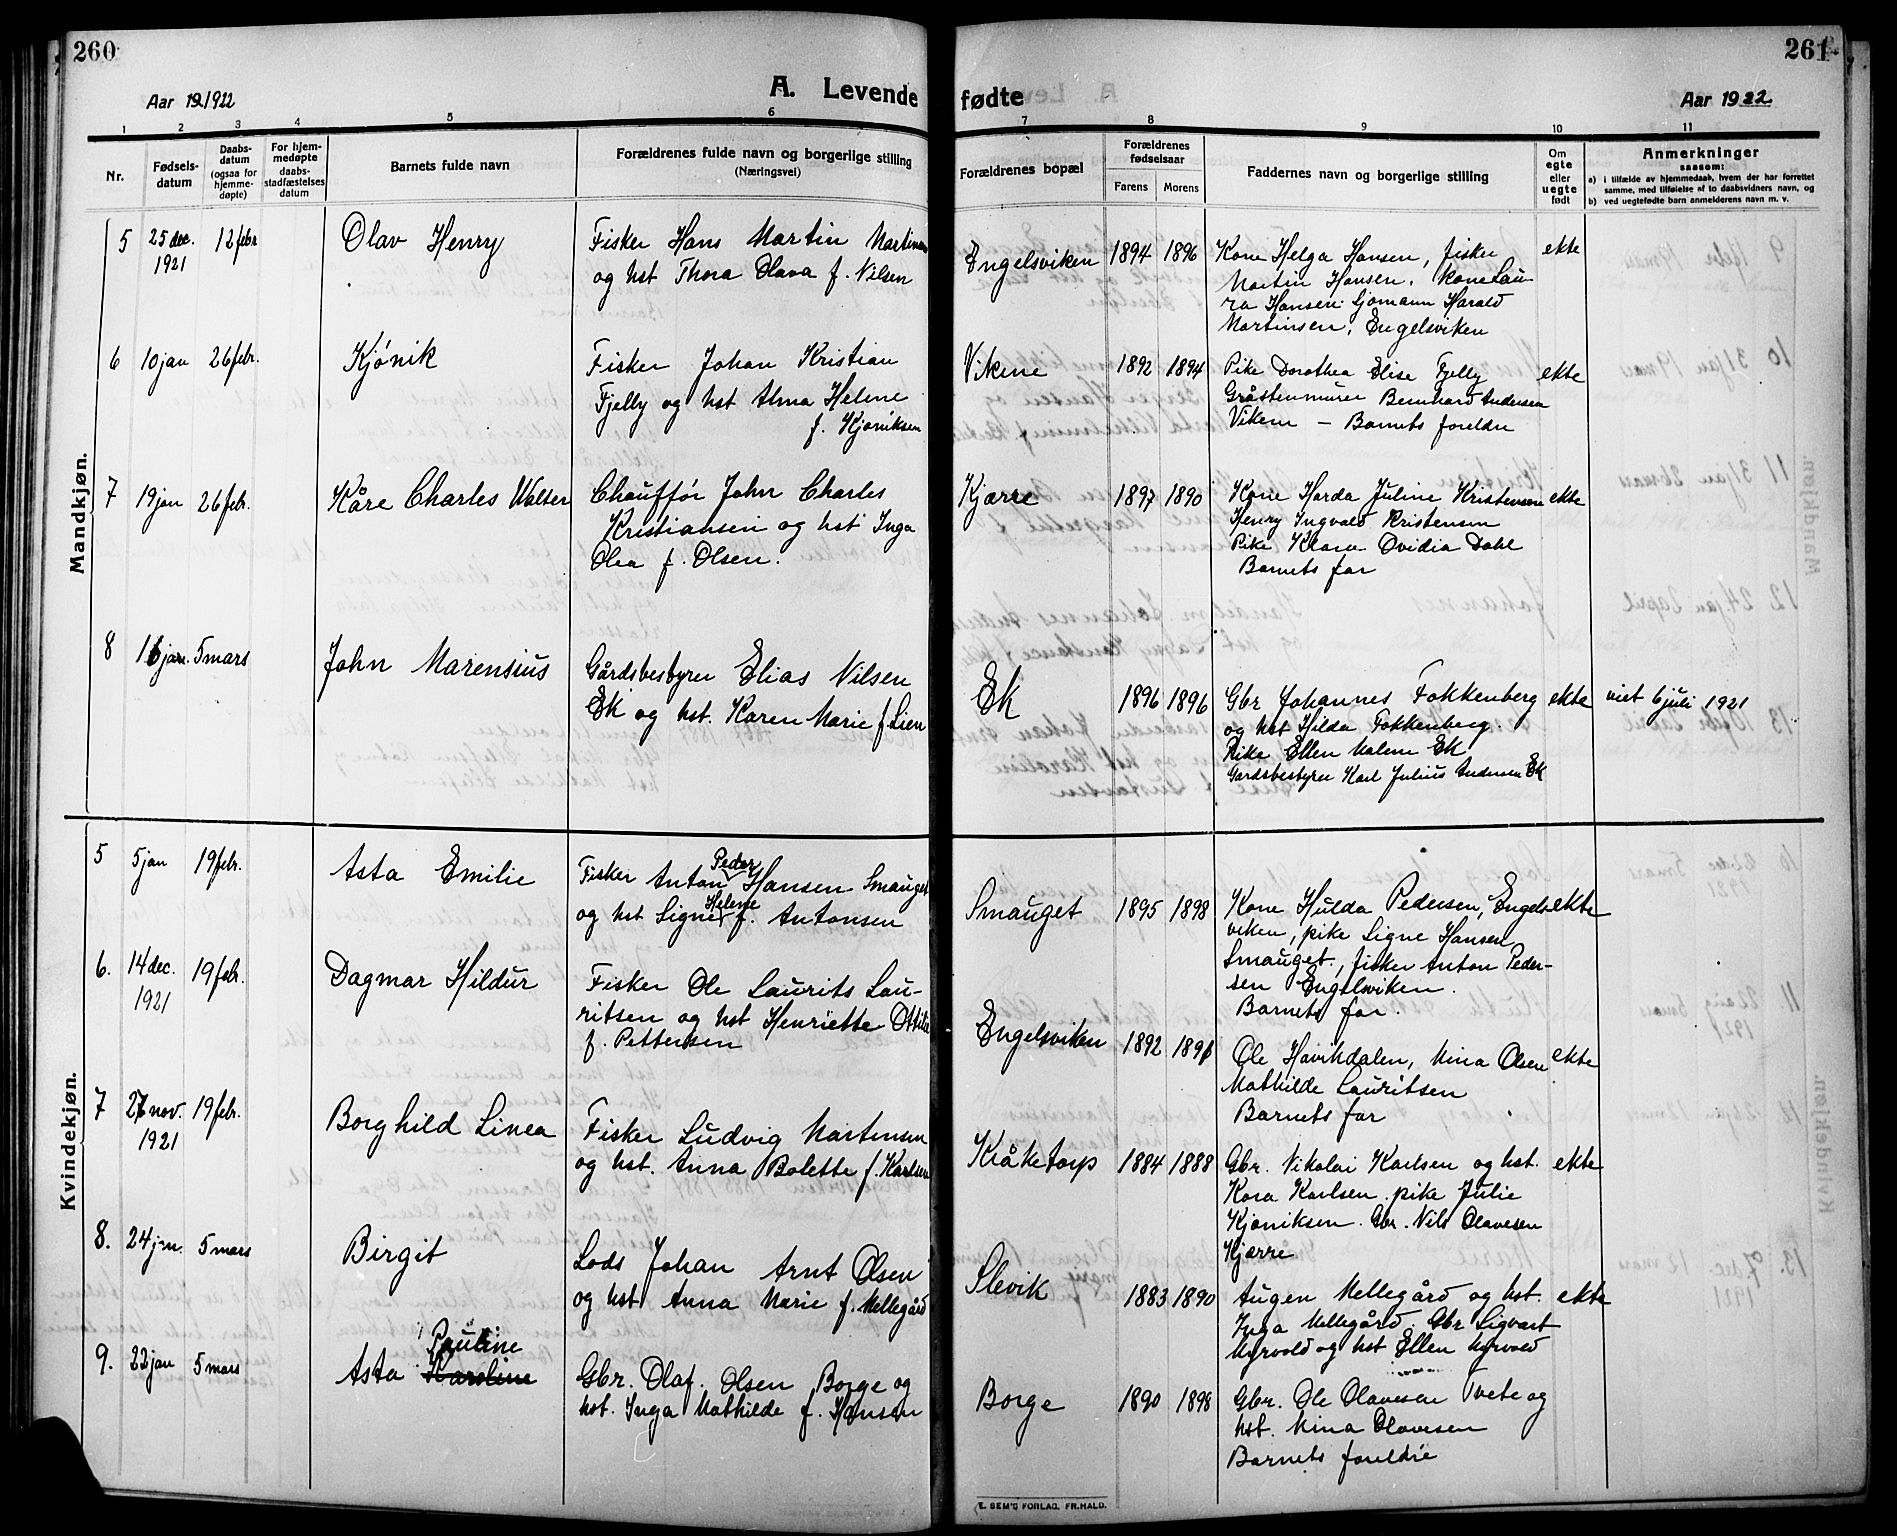 260
Aar 1921922
A. Levende
1 2 3 4 5 6
Nr.
Fødsels-
datum
Daabs-
datum
(ogsaa for
hjemme-
døpte)
For hjem-
medøpte
daabs-
stadfæstelses
datum
Barnets fulde navn
Forældrenes fulde navn og borgerlige stilling
(Næringsvei)
Mandkjøn.
5 25 dec. 12 febr Olav Henry Fisker Hans Martin Martinsen
1921 og hst Thora Olava f. Nilsen
6 10 jan 26 febr. Kjønik Fisker Johan Kristian
Fjelly og hst Alma Helene
f. Kjøniksen
7 19 jan 26 febr. Kåre Charles Walter Chauffør John Charles
Kristiansen og hst Inga
Olea f. Olsen.
8 16 jan. 5 mars John Marensius Gårdsbestyrer Elias Nilsen
Ek og hst. Karen Marie f Lien
Kvindekjøn.
5 5 jan 19 febr. Asta Emilie Fisker Anton Peder Hansen Smauget
og hst Signe Helene f. Antonsen
6. 14 dec. 19 febr. Dagmar Hildur Fisker Ole Laurits Lau-
1921 ritsen og hst Henriette Ottilie
f. Pettersen
7 27 nov. 19 febr. Borghild Linea Fisker Ludvig Martensen
1921 og hst. Anna Bolette f. Karlsen
8. 24 jan. 5 mars Birgit Lods Johan Arnt Olsen
og hst. Anna Marie f. Mellegård
Pauline
9. 22 jan 5 mars Asta Karoline Gbr. Olaf Olsen Borge og
hst. Inga Mathilde f. Hansen
261
fødte
Aar 1922
7 8 9 10 11
Forældrenes bopæl
Forældrenes
fødselsaar
Farens Morens
Faddernes navn og borgerlige stilling
Om
egte
eller
uegte
født
Anmerkninger
saasom:
a) i tilfælde av hjemmedaab, hvem der har forrettet
samme, med tilføielse af to daabsvidners navn, og
b) ved uegtefødte barn anmelderens navn m. v.
Engelsviken 1894 1896 Kone Helga Hansen, fisker ekte
Martin Hansen. Kone Lau
ra Hansen. Sjømann Harald
Martinsen, Engelsviken
Vikene 1892 1894 Pike Dorothea Elise Fjelly ekte
Gråstenmurer Bernhard Andersen
Vikene — Barnets foreldre
Kjærre 1897 1890 Kone Harda Juline Kristensen ekte
Henry Ingvald Kristensen
Pike Klara Ovidia Dahl
Barnets far
Ek 1896 1896 Gbr Johannes Fokkenberg ekte viet 6 juli 1921
og hst Hilda Fokkenberg.
Pike Ellen Malene Ek
Gardsbestyrer Karl Julius Andersen Ek
Smauget 1895 1898 Kone Hulda Pedersen, Engels- ekte
viken, pike Signe Hansen
Smauget, fisker Anton Peder-
sen Engelsviken.
Barnets far.
Engelsviken 1892 Ole Havikdalen, Mina Olsen ekte
Mathilde Lauritsen
Barnets far
Kråketorp 1884 1888 Gbr. Nikolai Karlsen og hst. ekte
Kora Karlsen. pike Julie
Kjøniksen. Gbr. Nils Olavesen
Kjærre
Slevik 1883 1890 Augen Mellegård og hst. ekte
Inga Mellegård. Gbr Sigvart
Myrvold og hst Ellen Myrvold
Borge 1890 1898 Gbr. Ole Olavesen Tvete og
hst. Mina Olavesen
Barnets foreldre
E. SEM'S FORLAG, FR.HALD.